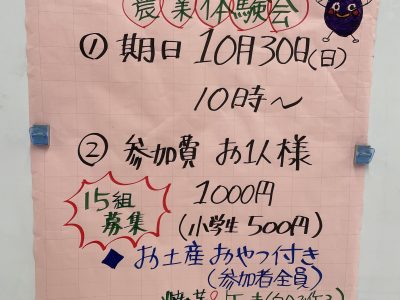 農業体験会
① 期日 10月30日(日)
10時～
② 参加費 お1人様
15組
募集
1000円
(小学生 500円)
◆ お土産 おやつ付き
(参加者全員)